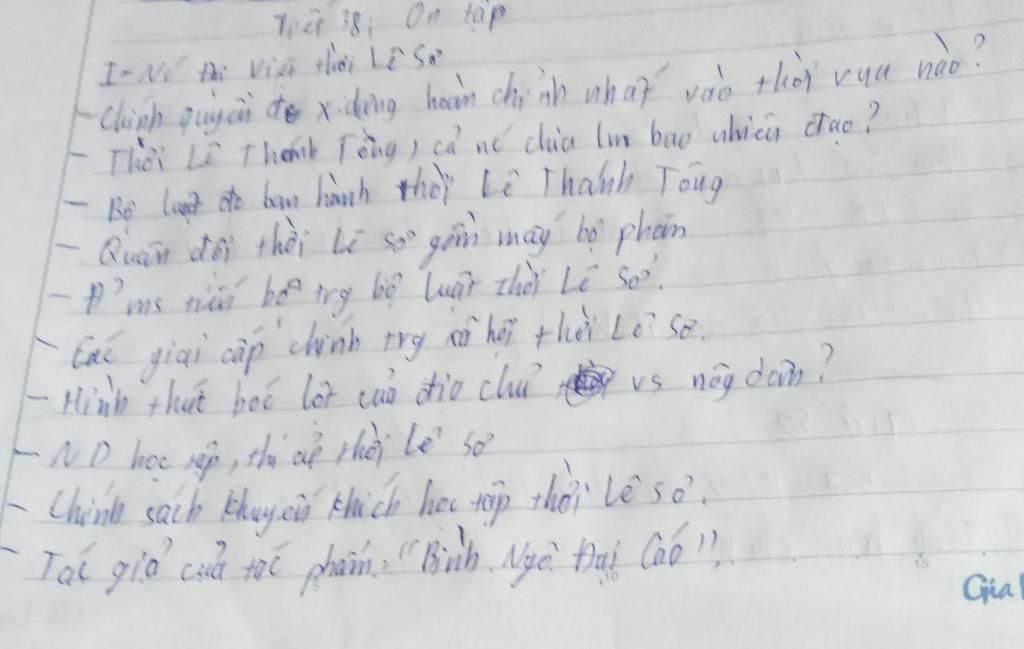 Tiết 38: Ôn tập
I - Nc Đại Việt thời Lê Sơ
- Chính quyền đc x.dựng hoàn chỉnh nhất vào thời vua nào?
- Thời Lê Thánh Tông, cả nc chia lm bao nhiêu đạo?
- Bộ luật đc ban hành thời Lê Thánh Tông
- Quân đội thời Lê sơ gồm mấy bộ phận
- Đ' ms tiến bộ trg bộ luật thời Lê Sơ.
- Các giai cấp chính trg xã hội thời Lê Sơ.
- Hình thức bóc lột của địa chủ vs nôg dân?
- ND học tập, thi cử thời Lê Sơ
- Chính sách khuyến khích học tập thời Lê Sơ.
- Tác giả của tác phẩm: "Bình Ngô Đại Cáo".
5 10 15